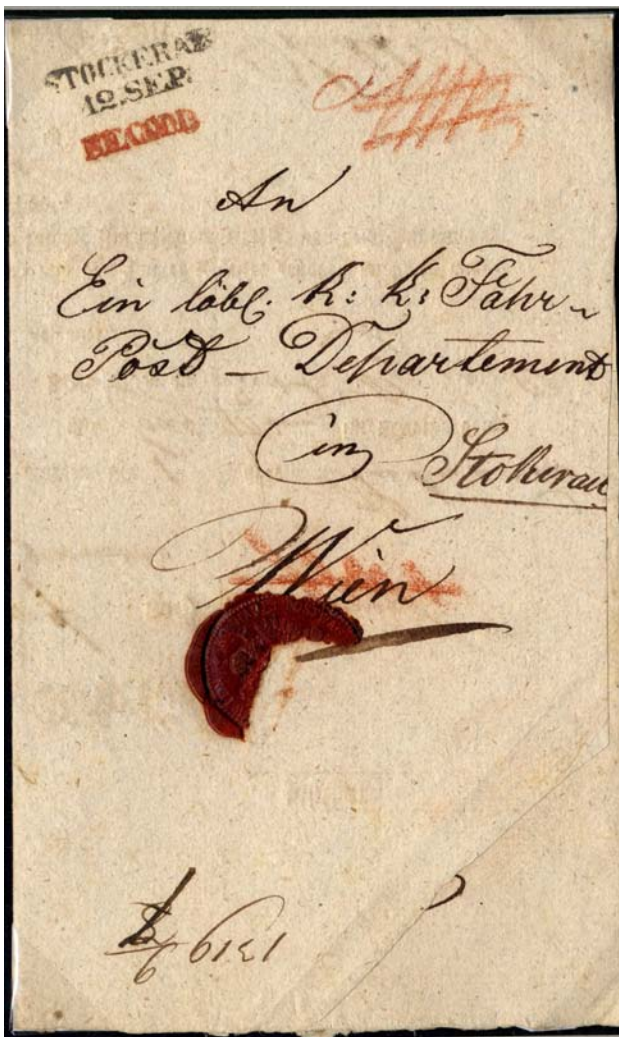 STOCKERAU
12. SEP.
RECOM
An
Ein löbl. k: k: Fahr-
Post – Departement
in Stokerau
Wien